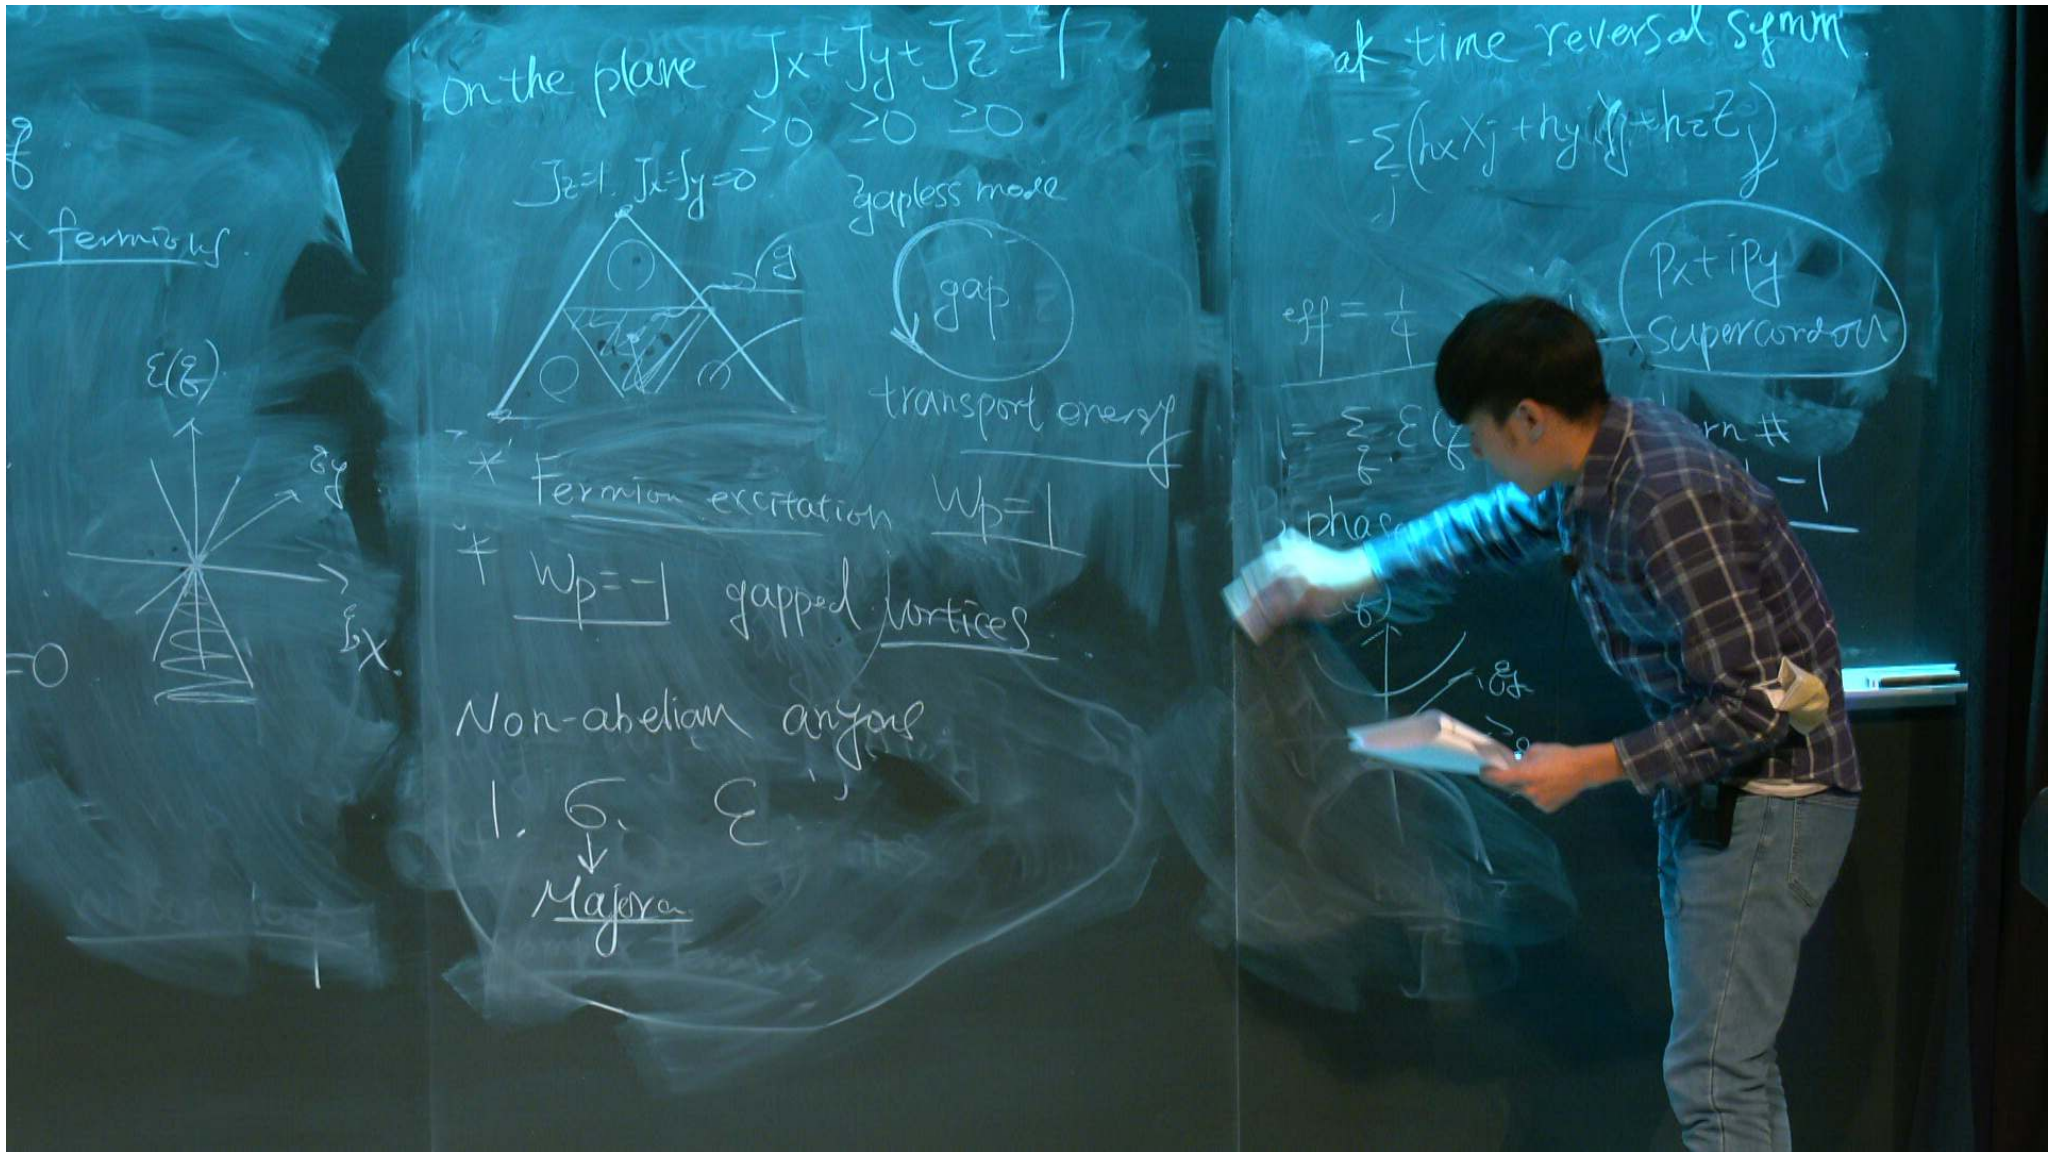 g
x fermions.
ε(q)
qy
qx.
=0
on the plane Jx+Jy+Jz=1
≥0 ≥0 ≥0
Jz=1. Jx=Jy=0
gapless mode
gap
transport energy
* Fermion excitation Wp=1
* Wp=-1 gapped vortices.
Non-abelian anyons
1. σ. ε
↓
Majora
ak time reversal symm.
-Σj(hxXj+hyYj+hzZj)
px+ipy
eff = 1/4
= Σq ε(q
rn #
-1
phas